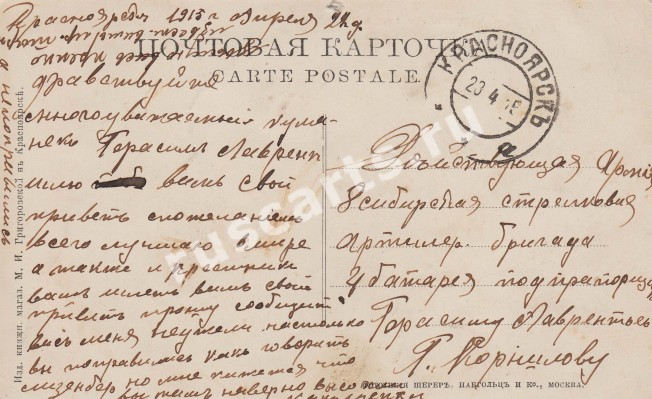 Красноярскъ 1915 г Апреля 22 д.
ПОЧТОВАЯ КАРТОЧКА
CARTE POSTALE.
КРАСНОЯРСКЪ
23 4 15
а
здравствуйте
многоуважаемый кума
Герасимъ Лаврент
шлю вамъ свой
приветъ с пожеланиемъ
всего лучшаго в мире
а также и крестники
вамъ шлемъ вамъ свой
приветъ прошу сообщить
васъ меня неужели настолько
вы поправились какъ говорить
но мне кажется что
вы тамъ наверно высо
Действующая Армия
8 сибирская стрелковая
Артилер. бригада
4 батарея подпрапорщи
Герасиму Лаврентьев
Г. Корнилову
Изд. книжн. магаз. М. И. Григоровской въ Красноярскѣ.
ШЕРЕРЪ, НАБГОЛЬЦЪ И Ко., МОСКВА.
ruscarts.ru